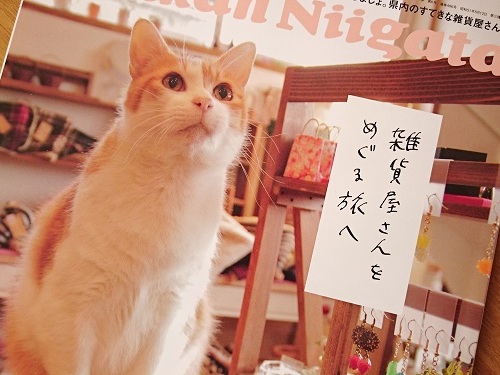 しょ。県内のすてきな雑貨屋さん
kan Niigata
雑貨屋さんを
めぐる旅へ